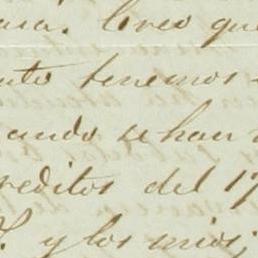 Creo que
tenemos
ando se han
reditos del 17
y los mios;